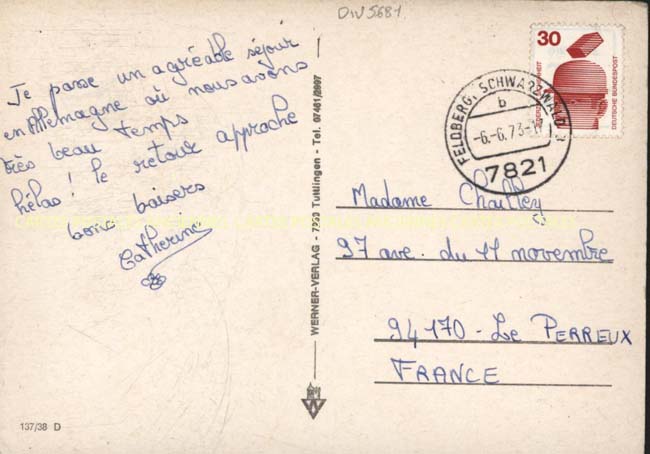 DIV5681
Je passe un agréable séjour
en Allemagne où nous avons
très beau temps
hélas! le retour approche
bons baisers
Catherine
WERNER-VERLAG - 7200 Tuttlingen - Tel. 07461/2997
137/38 D
30
DEUTSCHE BUNDESPOST
FELDBERG, SCHWARZWALD 1
b
-6.-6.73-
7821
Madame Chailley
97 ave. du 11 novembre
94170 - Le PERREUX
FRANCE